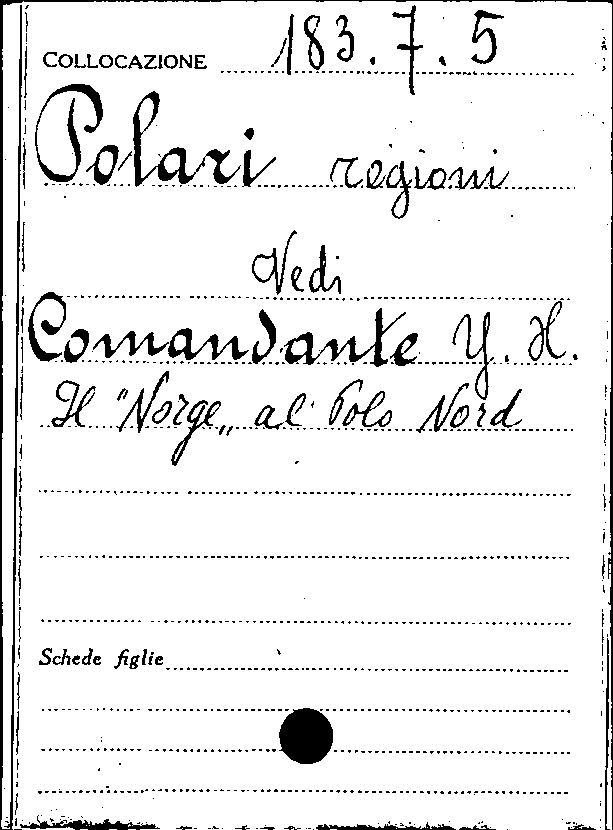 COLLOCAZIONE 183.7.5
Polari regioni
Vedi
Comandante Y. H.
Il "Norge„ al Polo Nord
Schede figlie